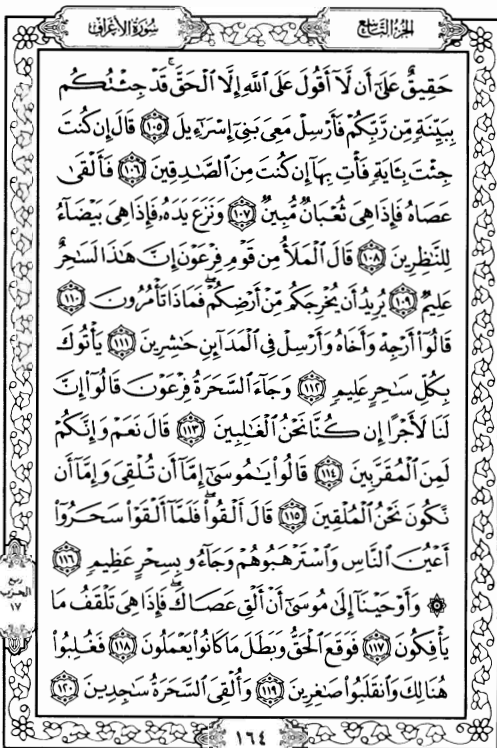 سُورَةُ الأَعْرَافِ
الجُزْءُ التَّاسِعُ
حَقِيقٌ عَلَىٰٓ أَن لَّآ أَقُولَ عَلَى ٱللَّهِ إِلَّا ٱلْحَقَّۚ قَدْ جِئْتُكُم
بِبَيِّنَةٍ مِّن رَّبِّكُمْ فَأَرْسِلْ مَعِىَ بَنِىٓ إِسْرَٰٓءِيلَ ١٠٥ قَالَ إِن كُنتَ
جِئْتَ بِـَٔايَةٍ فَأْتِ بِهَآ إِن كُنتَ مِنَ ٱلصَّٰدِقِينَ ١٠٦ فَأَلْقَىٰ
عَصَاهُ فَإِذَا هِىَ ثُعْبَانٌ مُّبِينٌ ١٠٧ وَنَزَعَ يَدَهُۥ فَإِذَا هِىَ بَيْضَآءُ
لِلنَّٰظِرِينَ ١٠٨ قَالَ ٱلْمَلَأُ مِن قَوْمِ فِرْعَوْنَ إِنَّ هَٰذَا لَسَٰحِرٌ
عَلِيمٌ ١٠٩ يُرِيدُ أَن يُخْرِجَكُم مِّنْ أَرْضِكُمْۖ فَمَاذَا تَأْمُرُونَ ١١٠
قَالُوٓا۟ أَرْجِهْ وَأَخَاهُ وَأَرْسِلْ فِى ٱلْمَدَآئِنِ حَٰشِرِينَ ١١١ يَأْتُوكَ
بِكُلِّ سَٰحِرٍ عَلِيمٍ ١١٢ وَجَآءَ ٱلسَّحَرَةُ فِرْعَوْنَ قَالُوٓا۟ إِنَّ
لَنَا لَأَجْرًا إِن كُنَّا نَحْنُ ٱلْغَٰلِبِينَ ١١٣ قَالَ نَعَمْ وَإِنَّكُمْ
لَمِنَ ٱلْمُقَرَّبِينَ ١١٤ قَالُوا۟ يَٰمُوسَىٰٓ إِمَّآ أَن تُلْقِىَ وَإِمَّآ أَن
نَّكُونَ نَحْنُ ٱلْمُلْقِينَ ١١٥ قَالَ أَلْقُوا۟ۖ فَلَمَّآ أَلْقَوْا۟ سَحَرُوٓا۟
أَعْيُنَ ٱلنَّاسِ وَٱسْتَرْهَبُوهُمْ وَجَآءُو بِسِحْرٍ عَظِيمٍ ١١٦
۞ وَأَوْحَيْنَآ إِلَىٰ مُوسَىٰٓ أَنْ أَلْقِ عَصَاكَۖ فَإِذَا هِىَ تَلْقَفُ مَا
يَأْفِكُونَ ١١٧ فَوَقَعَ ٱلْحَقُّ وَبَطَلَ مَا كَانُوا۟ يَعْمَلُونَ ١١٨ فَغُلِبُوا۟
هُنَالِكَ وَٱنقَلَبُوا۟ صَٰغِرِينَ ١١٩ وَأُلْقِىَ ٱلسَّحَرَةُ سَٰجِدِينَ ١٢٠
ربع
الحزب
١٧
١٦٤